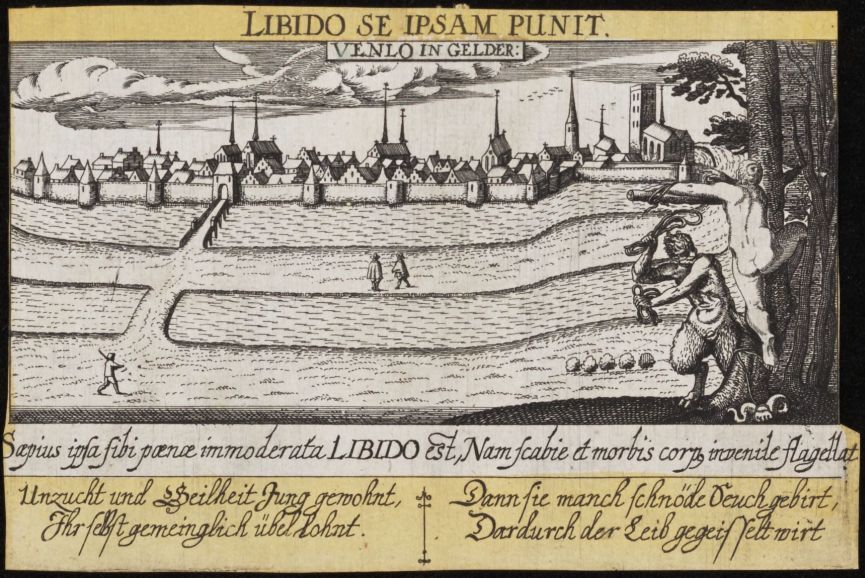 LIBIDO SE IPSAM PUNIT.
VENLO IN GELDER:
Sæpius ipsa sibi pœnæ immoderata LIBIDO est, Nam scabie et morbis corpꝰ invenile flagellat
Unzucht und Geilheit Jung gewohnt,
Ihr selbst gemeinglich übel lohnt.
Dann sie manch schnöde Seuch gebirt,
Dardurch der Leib gegeisselt wirt